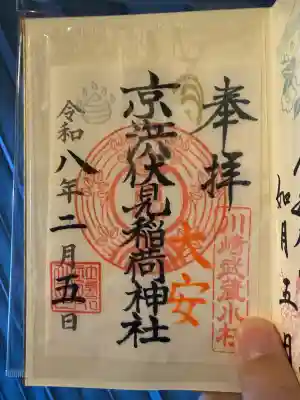 奉拝
川崎武蔵小杉
大安
京濱伏見稲荷神社
令和八年二月五日
如月五日